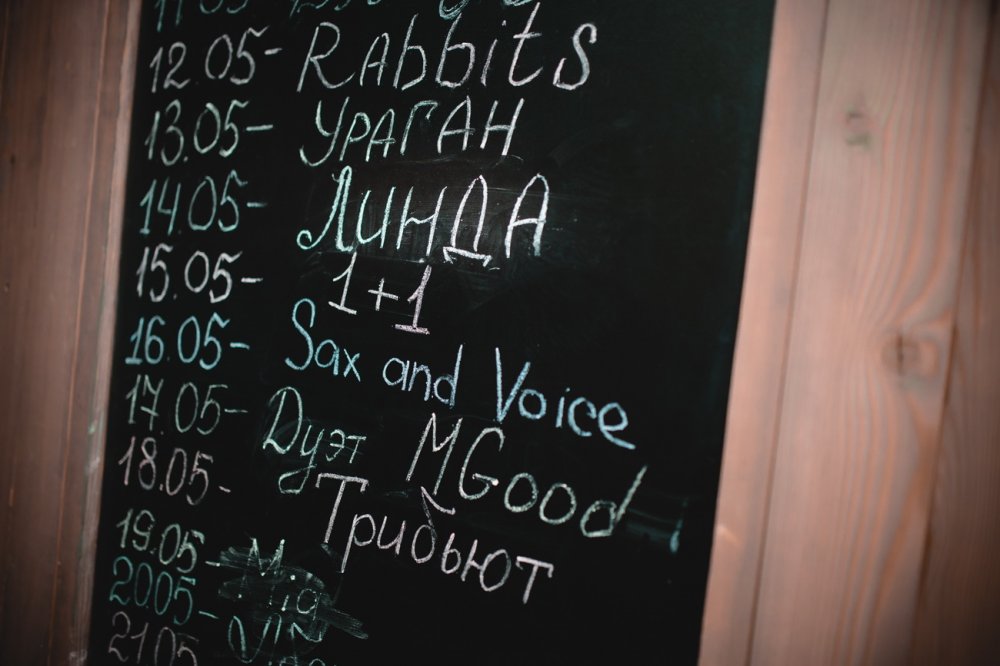 12.05- Rabbits
13.05- Ураган
14.05- Линда
15.05- 1+1
16.05- Sax and Voice
17.05- Дуэт MGood
18.05- Трибьют
19.05
20.05-
21.05